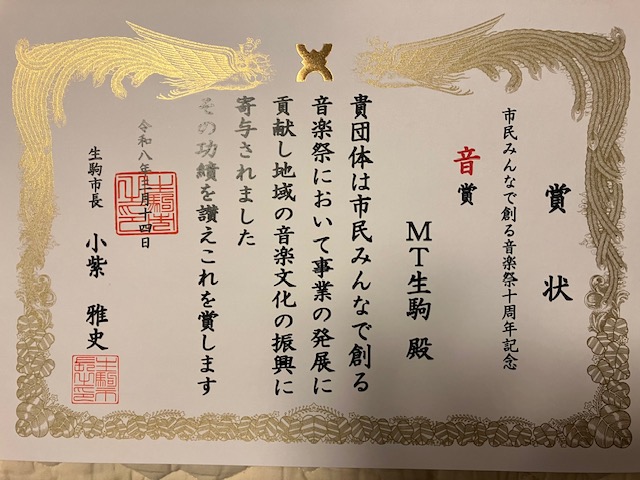 賞状
市民みんなで創る音楽祭十周年記念
音賞
MT生駒 殿
貴団体は市民みんなで創る
音楽祭において事業の発展に
貢献し地域の音楽文化の振興に
寄与されました
その功績を讃えこれを賞します
令和八年三月十四日
生駒市長 小紫 雅史